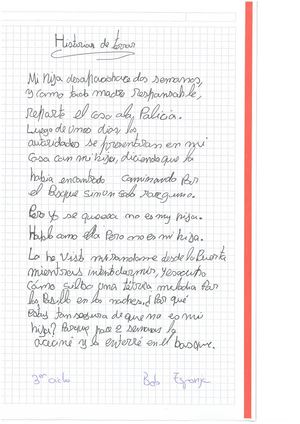 Historias de terror
Mi hija desapareció hace dos semanas,
y como toda madre responsable,
reporté el caso a la Policía.
Luego de unos días las
autoridades se presentaron en mi
casa con mi hija, diciendo que la
había encontrado caminando por
el Bosque sin un solo rasguño.
Pero yo se que esa no es my hija.
Habla como ella Pero no es mi hija.
La he visto mirandome desde la Puerta
mientras intento dormir, y escucho
cómo silba una tétrica melodia Por
los Pasillo en las noches ¿Por qué
estas tan segura de que no es mi
hija? Porque hace 2 semanas la
y la enterré en el bosque.
3er ciclo
Bob Esponja